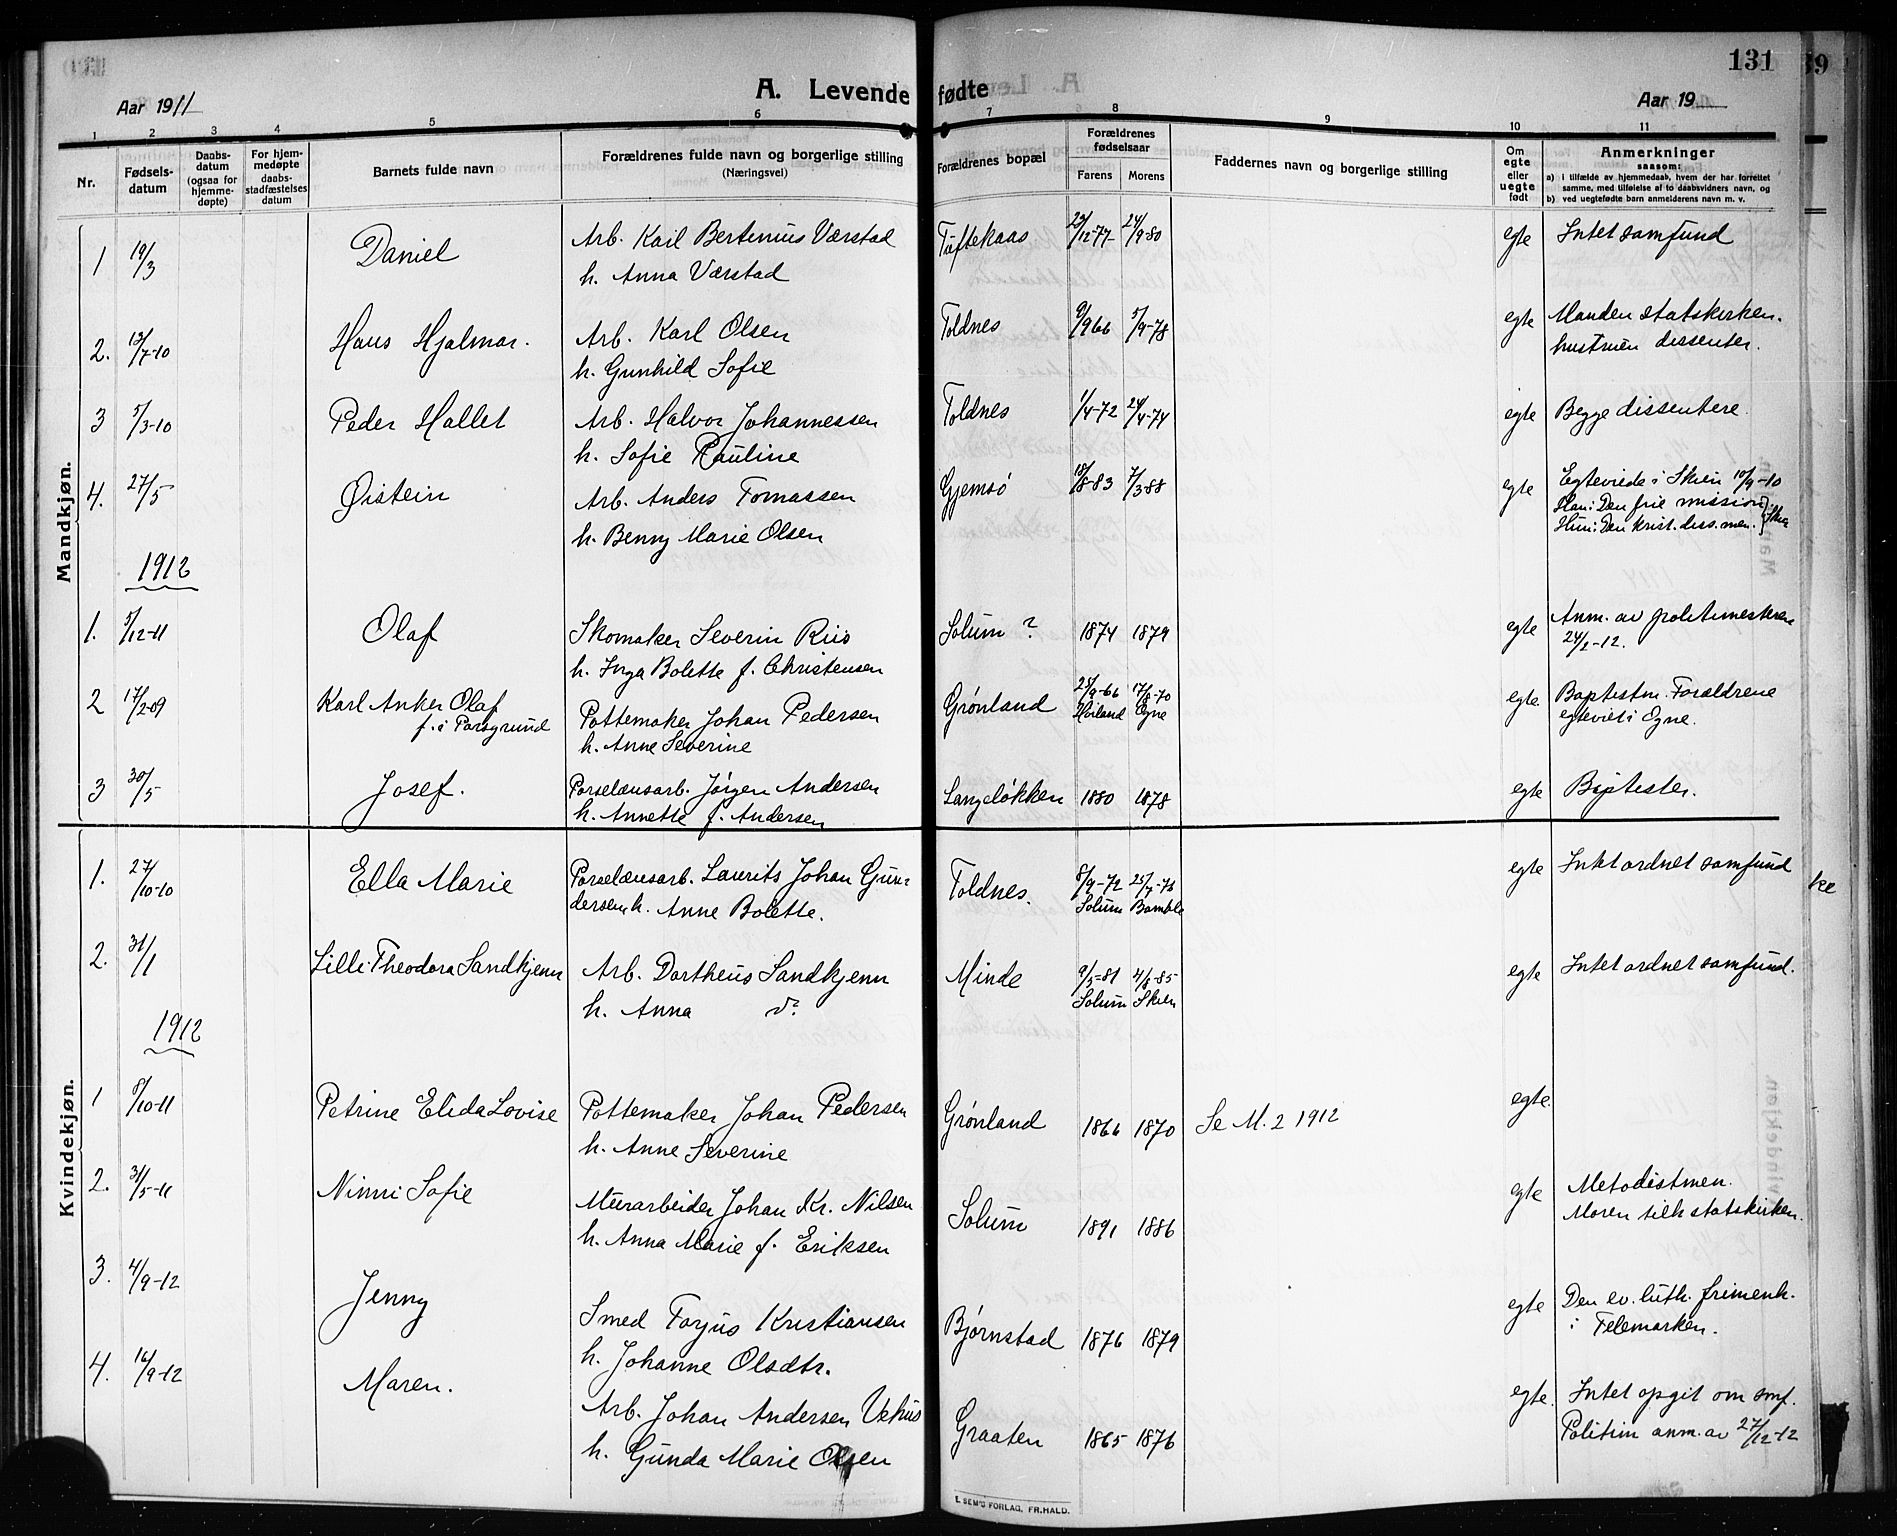 131
A. Levende fødte
Aar 1911
Aar 19
1 2 3 4 5 6 7 8 9 10 11
Nr.
Fødsels-
datum
Daabs-
datum
(ogsaa for
hjemme-
døpte)
For hjem-
medøpte
daabs-
stadfæstelses
datum
Barnets fulde navn
Forældrenes fulde navn og borgerlige stilling
(Næringsvei)
Forældrenes bopæl
Forældrenes
fødselsaar
Farens Morens
Faddernes navn og borgerlige stilling
Om
egte
eller
uegte
født
Anmerkninger
saasom:
a) i tilfælde av hjemmedaab, hvem der har forrettet
samme, med tilføielse af to daabsvidners navn, og
b) ved uegtefødte barn anmelderens navn m. v.
Mandkjøn.
1 19/3 Daniel Arb. Karl Bertinius Værstad Tuftekaas 23/12-77 24/9-80 egte Intet samfund
h. Anna Værstad
2. 13/7-10 Hans Hjalmar. Arb. Karl Olsen Toldnes 9/9 66 5/9-78 egte Manden statskirken.
h. Gunhild Sofie hustruen dissenter.
3 5/3-10 Peder Hallet Arb. Halvor Johannessen Toldnes 1/4-72 24/4-74 egte Begge dissentere.
h. Sofie Pauline
4. 27/5 Øistein Arb. Anders Tomassen Gjemsø 18/8-83 7/3-88 egte Egteviede i Skien 10/9-10
Han: Den frie mission
h. Benny Marie Olsen Hun: Den krist. diss. men.
1912
1. 5/12-11 Olaf Skomaker Severin Riis Solum? 1874 1879 egte Anm. av politimesteren
h. Inga Bolette f. Christensen 24/2-12.
2 17/2-09 Karl Anker Olaf Pottemaker Johan Pedersen Grønland 25/9-66 17/8-70 egte Baptistm. Forældrene
f. i Porsgrund h. Anne Severine Høiland Ogne egteviet i Ogne.
3 30/5 Josef. Porselænsarb. Jørgen Andersen Langeløkken 1880 1878 egte Baptister.
h. Annette f. Andersen
Kvindekjøn.
1. 27/10-10 Ella Marie Porselænsarb. Laurits Johan Gun- Toldnes. 8/9-72 25/7-76 egte Intet ordnet samfund
dersen h. Anne Bolette. Solum Bamble
2. 31/1 Lilli Theodora Sandkjenn Arb. Dortheus Sandkjenn Minde 9/3-81 4/8-85 egte Intet ordnet samfund.
h. Anna do Solum Skien
1912
1 8/10-11 Petrine Elida Lovise Pottemaker Johan Pedersen Grønland 1866 1870 Se M. 2 1912 egte.
h. Anne Severine
2. 31/5-11 Ninni Sofie Murarbeider Johan Kr. Nilsen Solum 1891 1886 egte Metodistmen.
h. Anna Marie f. Eriksen Moren tilh statskirken.
3. 4/9-12 Jenny Smed Torjus Kristiansen Bjørnstad 1876 1879 egte Den ev. luth. frimenh.
h. Johanne Olsdtr. i Telemarken.
4. 16/9-12 Maren. Arb. Johan Andersen Vehus Graaten 1865 1876 egte. Intet opgit om smf.
h. Gunda Marie Olsen Politim anm. av 27/12-12
E. SEM'S FORLAG, FR.HALD.